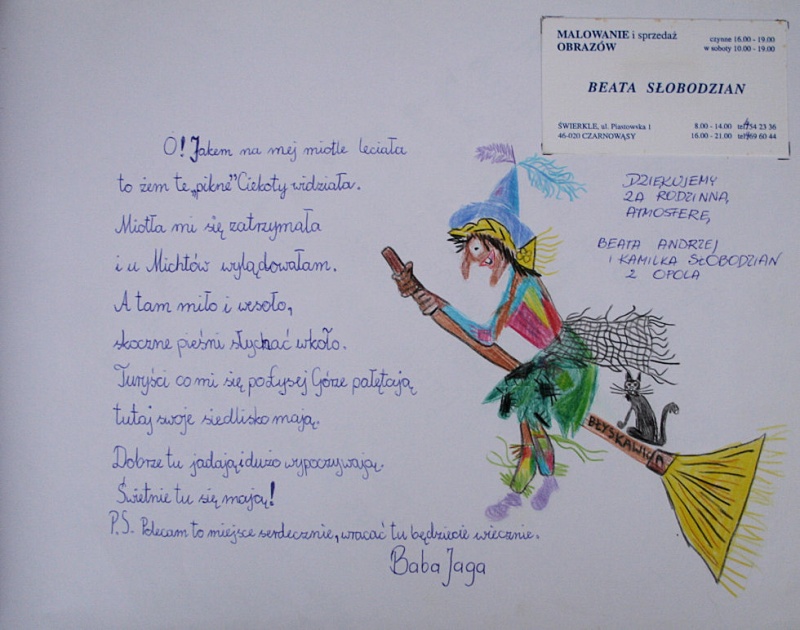 MALOWANIE i sprzedaż
OBRAZÓW
czynne 16.00 - 19.00
w soboty 10.00 - 19.00
BEATA SŁOBODZIAN
ŚWIERKLE, ul. Piastowska 1
46-020 CZARNOWĄSY
8.00 - 14.00 tel. 54 23 36
16.00 - 21.00 tel. 69 60 44
O! Jakem na mej miotle leciała
to żem te „pikne" Ciekoty widziała.
Miotła mi się zatrzymała
i u Michtów wylądowałam.
A tam miło i wesoło,
skoczne pieśni słychać wkoło.
Turyści co mi się po Łysej Górze pałętają
tutaj swoje siedlisko mają.
Dobrze tu jadają i dużo wypoczywają.
Świetnie tu się mają!
P.S. Polecam to miejsce serdecznie, wracać tu będziecie wiecznie.
Baba Jaga
DZIĘKUJEMY
ZA RODZINNĄ
ATMOSFERĘ,
BEATA ANDRZEJ
I KAMILKA SŁOBODZIAN
Z OPOLA
BŁYSKAWICA